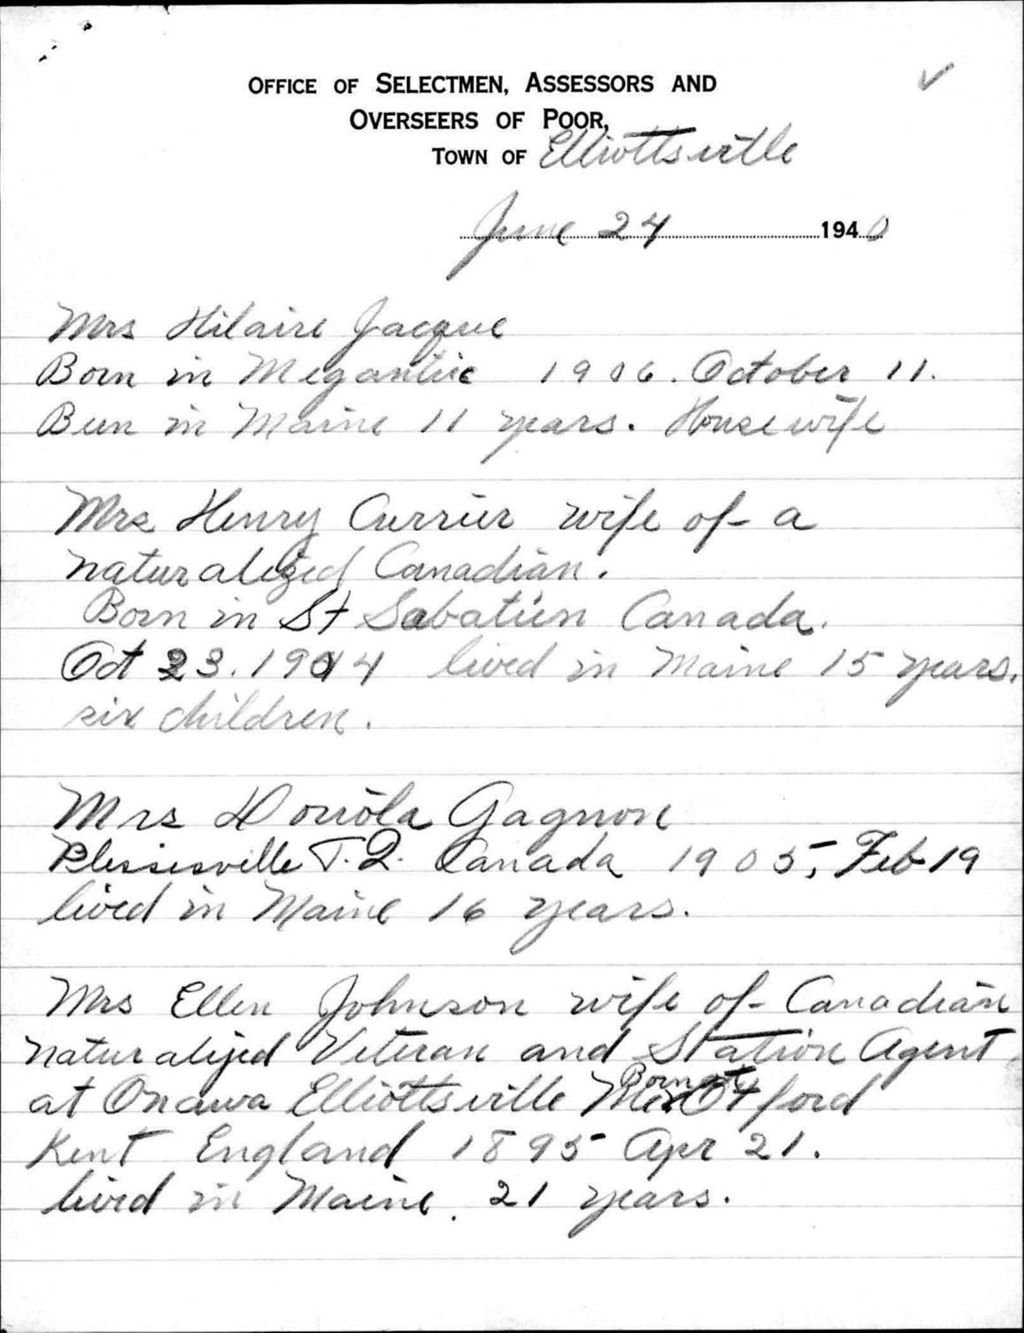 OFFICE OF SELECTMEN, ASSESSORS AND
OVERSEERS OF POOR,
TOWN OF Elliottsville
June 24 1940
Mrs Hilaire Jacque
Born in Megantic 1906. October 11.
Been in Maine 11 years. Housewife
Mrs Henry Currier wife of a
naturalized Canadian.
Born in St Sabatien Canada.
Oct 23. 1904 lived in Maine 15 years.
six children.
Mrs Gagnon
Plessisville P.Q. Canada 1905, Feb 19
lived in Maine 16 years.
Mrs Ellen Johnson wife of Canadian
naturalized Veteran and Station Agent
at Onawa Elliottsville Me Born at Otford
Kent England 1895 Apr 21.
lived in Maine. 21 years.